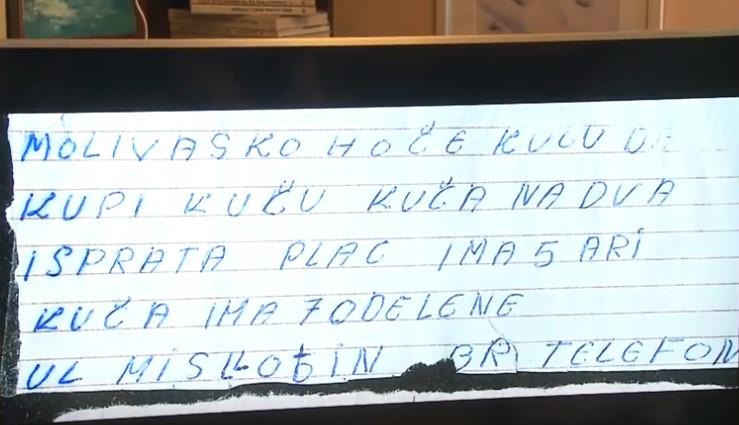 MOLIVASKO HOČE KUĆU DA
KUPI KUČU KUČA NA DVA
ISPRATA PLAC IMA 5 ARI
KUČA IMA 7 ODELENE
UL MIŠ BR TELEFON